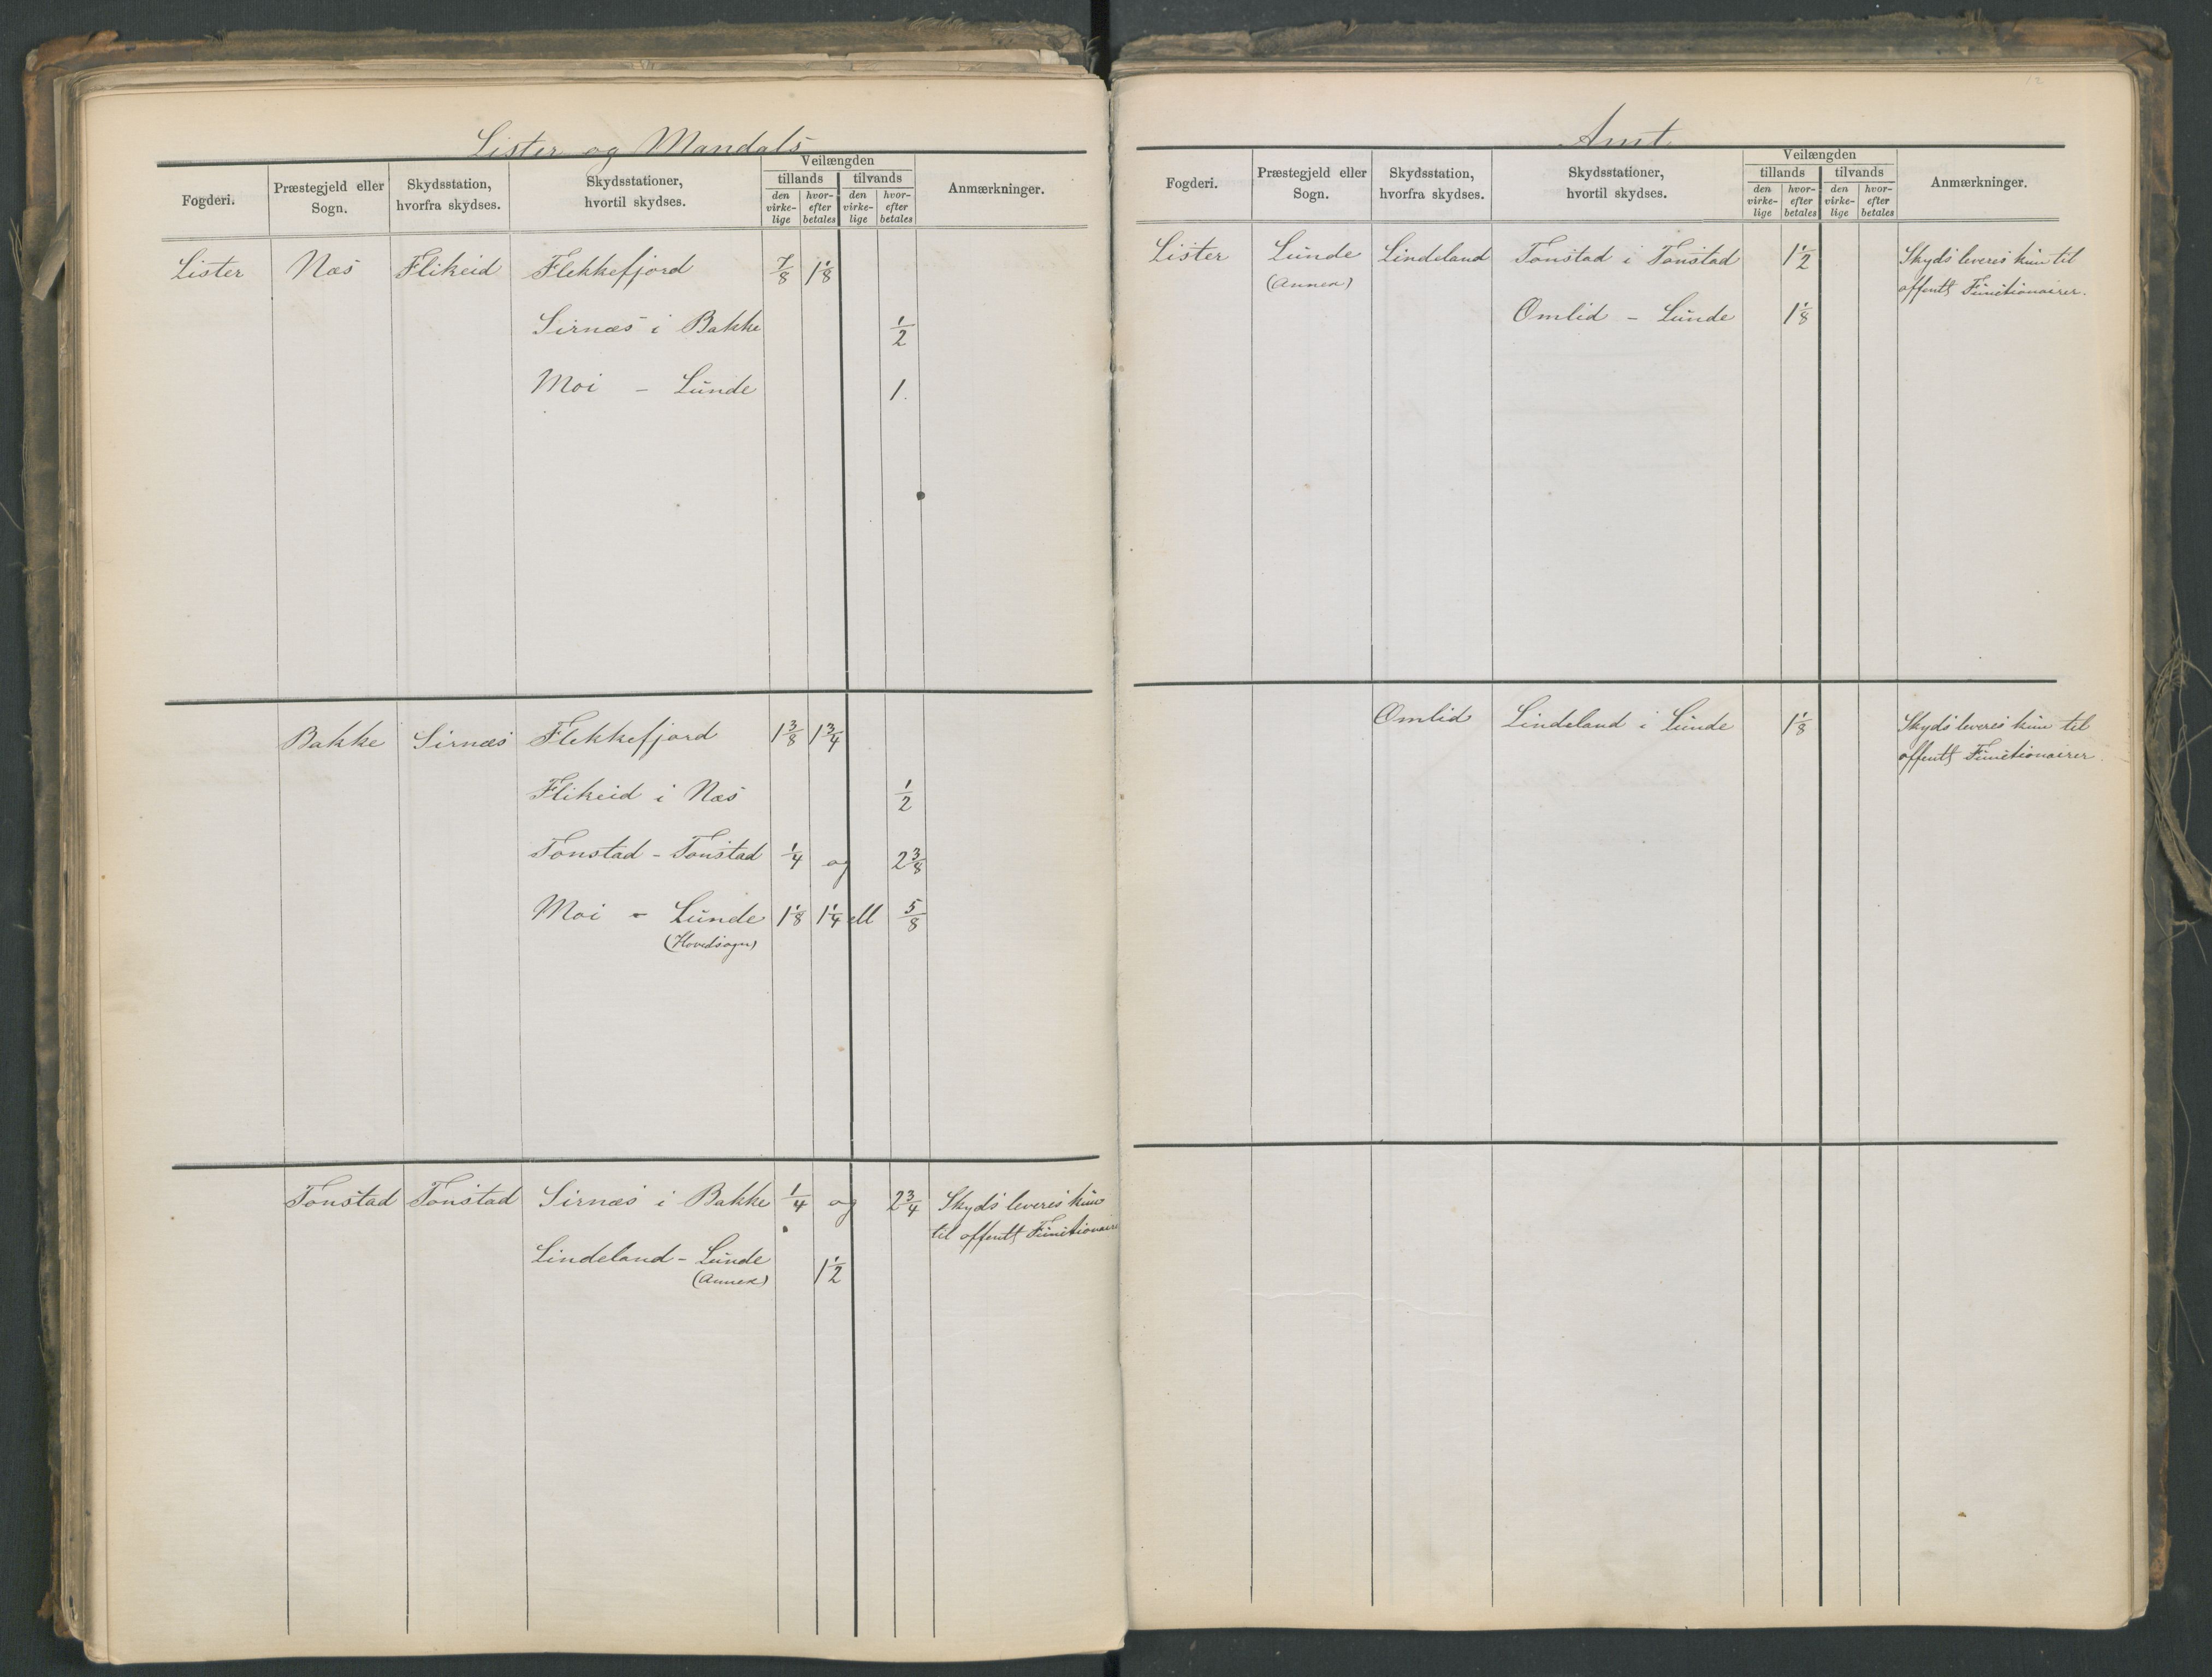 Lister og Mandals
Fogderi. Præstegjeld eller Sogn. Skydsstation, hvorfra skydses. Skydsstationer, hvortil skydses. Veilængden Anmærkninger.
tillands tilvands
den virke-lige hvor-efter betales den virke-lige hvor-efter betales
Lister Næs Flikeid Flekkefjord 7/8 1 1/8
Sirnæs i Bakke 1/2
Moi - Lunde 1.
Bakke Sirnæs Flekkefjord 1 3/8 1 3/4
Flikeid i Næs 1/2
Tonstad - Tonstad 1/4 og 2 3/8
Moi - Lunde 1 1/8 1 1/4 ell 5/8
(Hovedsogn)
Tonstad Tonstad Sirnæs i Bakke 1/4 og 2 3/4 Skyds leveres kun
til offentl Functionaire
Lindeland - Lunde 1 1/2
(Annex)
12
Amt
Fogderi. Præstegjeld eller Sogn. Skydsstation, hvorfra skydses. Skydsstationer, hvortil skydses. Veilængden Anmærkninger.
tillands tilvands
den virke-lige hvor-efter betales den virke-lige hvor-efter betales
Lister Lunde Lindeland Tonstad i Tonstad 1 1/2 Skyds leveres kun til
(Annex) offentl Functionairer.
Omlid - Lunde 1 1/8
Omlid Lindeland i Lunde 1 1/8 Skyds leveres kun til
offentl Functionairer.